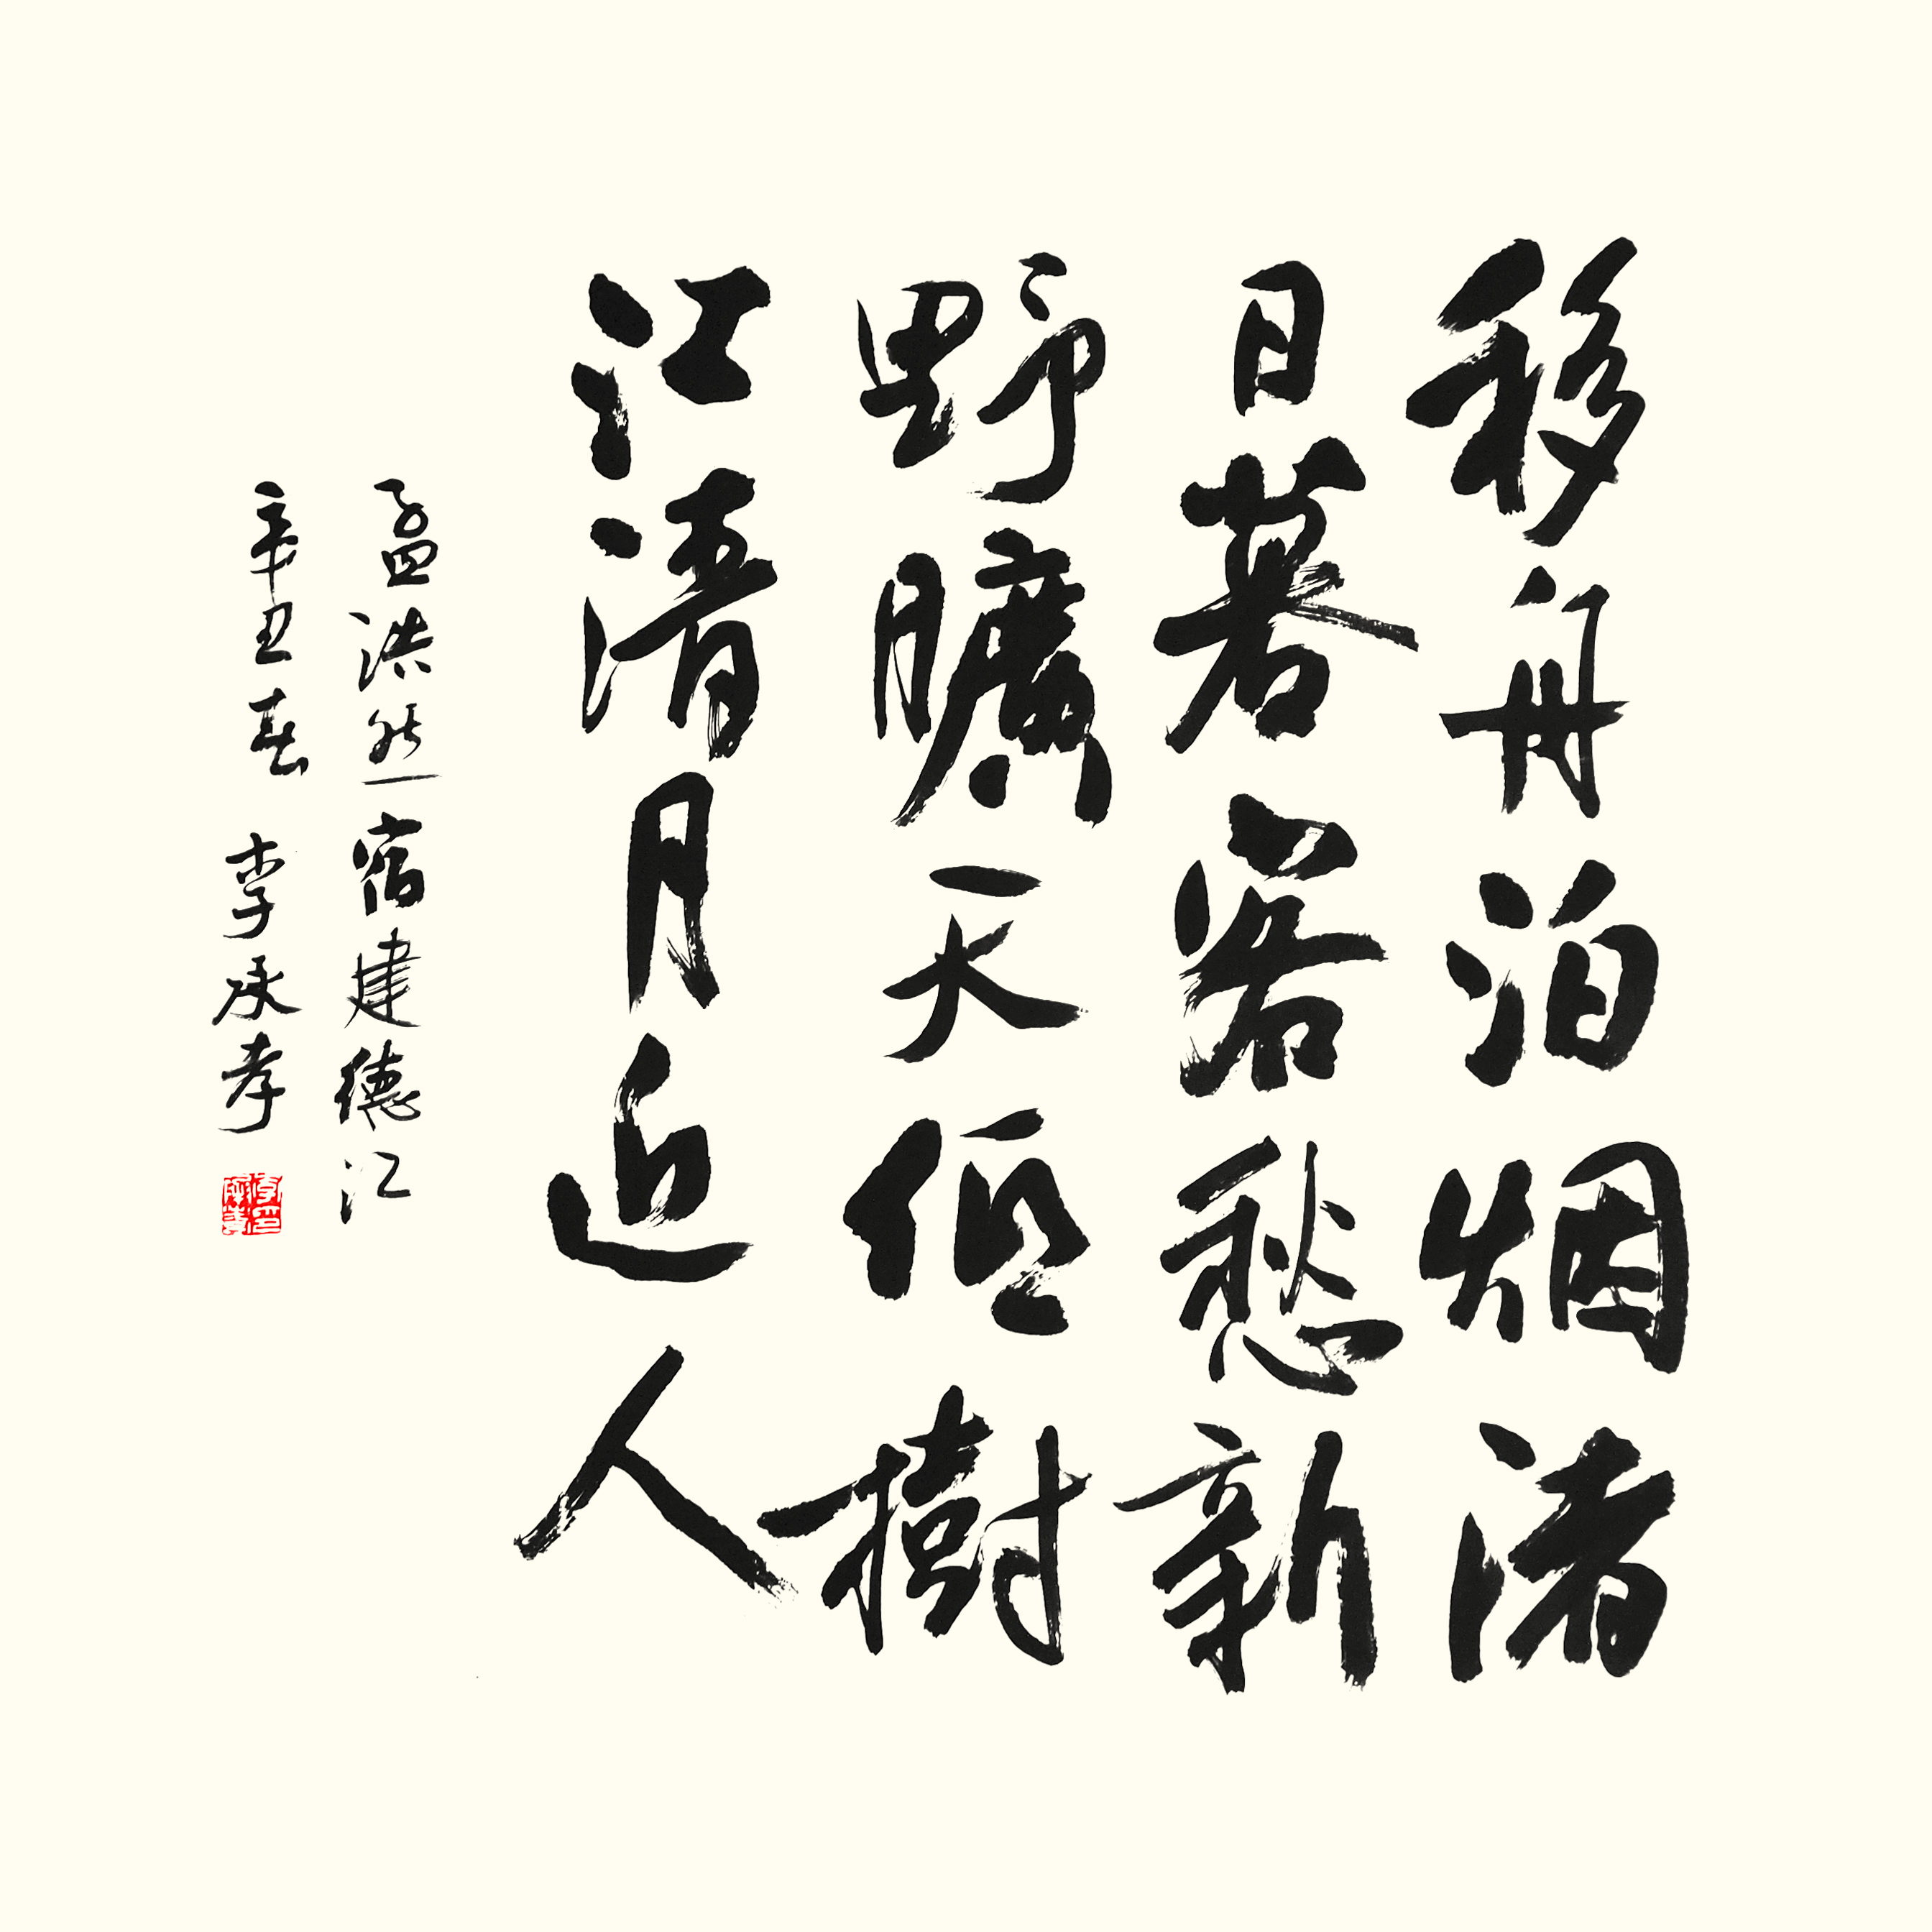 移舟泊烟渚
日暮客愁新
野曠天低樹
江清月近人
孟浩然 宿建德江
辛丑春 李承孝